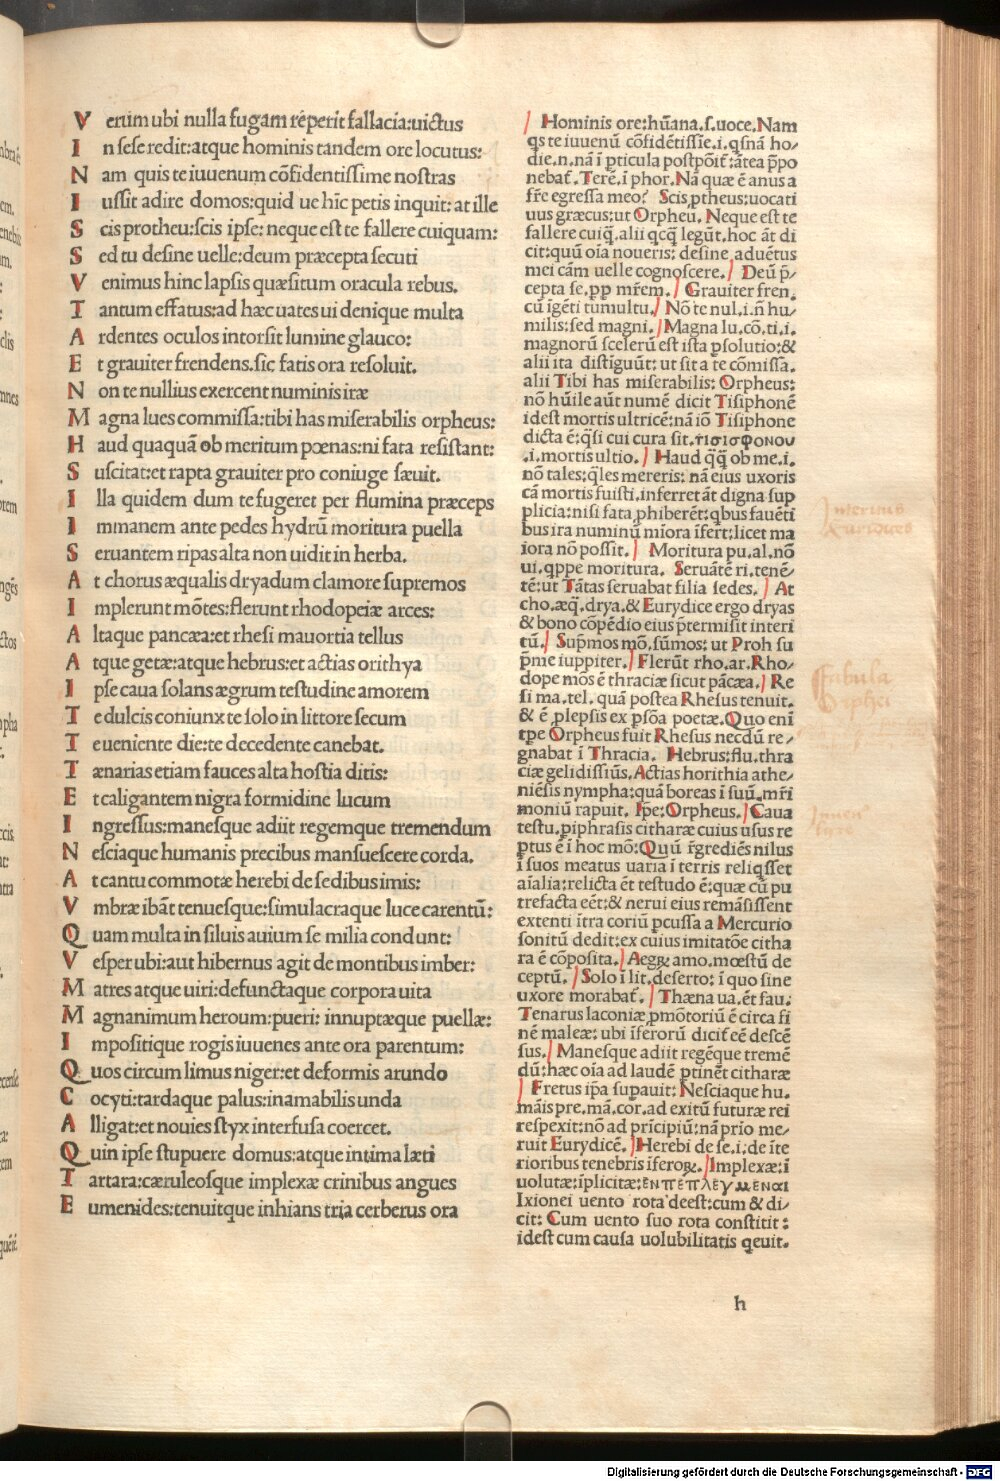 V erum ubi nulla fugam reperit fallacia:uictus
I n sese redit:atque hominis tandem ore locutus:
N am quis te iuuenum cōfidentissime nostras
I ussit adire domos:quid ue hīc petis inquit: at ille
S cis protheu:scis ipse: neque est te fallere cuiquam:
S ed tu desine uelle:deum præcepta secuti
V enimus hinc lapsis quæsitum oracula rebus.
T antum effatus:ad hæc uates ui denique multa
A rdentes oculos intorsit lumine glauco:
E t grauiter frendens.sic fatis ora resoluit.
N on te nullius exercent numinis iræ
M agna lues commissa:tibi has miserabilis orpheus:
H aud quaquā ob meritum pœnas:ni fata resistant:
S uscitat:et rapta grauiter pro coniuge sæuit.
I lla quidem dum te fugeret per flumina præceps
I mmanem ante pedes hydrū moritura puella
S eruantem ripas alta non uidit in herba.
A t chorus æqualis dryadum clamore supremos
I mplerunt mōtes:flerunt rhodopeiæ arces:
A ltaque pancæa:et rhesi mauortia tellus
A tque getæ:atque hebrus:et actias orithya
I pse caua solans ægrum testudine amorem
T e dulcis coniunx te solo in littore secum
T e ueniente die:te decedente canebat.
T ænarias etiam fauces alta hostia ditis:
E t caligantem nigra formidine lucum
I ngressus:manesque adiit regemque tremendum
N esciaque humanis precibus mansuescere corda.
A t cantu commotæ herebi de sedibus imis:
V mbræ ibāt tenuesque:simulacraque luce carentū:
Q uam multa in siluis auium se milia condunt:
V esper ubi:aut hibernus agit de montibus imber:
M atres atque uiri:defunctaque corpora uita
M agnanimum heroum:pueri: innuptæque puellæ:
I mpositique rogis iuuenes ante ora parentum:
Q uos circum limus niger:et deformis arundo
C ocyti:tardaque palus:inamabilis unda
A lligat:et nouies styx interfusa coercet.
Q uin ipse stupuere domus:atque intima læti
T artara:cæruleosque implexæ crinibus angues
E umenides:tenuitque inhians tria cerberus ora
Hominis ore:hūana.s.uoce.Nam
qs te iuuenū cōfidētissie.i.qsnā ho-
die.n.nā ī pticula postpōit:ātea p̄po
nebat. Terē.ī phor.Nā quæ ē anus a
fr̄e egressa meo? Scis ptheus:uocati
uus græcus:ut Orpheu. Neque est te
fallere cuiq̄.alii qcq̄ legūt.hoc āt di
cit:quū oīa noueris: desine aduētus
mei cām uelle cognoscere. Deū p̄-
cepta se.pp mr̄em. Grauiter fren.
cū īgēti tumultu. Nō te nul.i.n̄ hu-
milis:sed magni. Magna lu.cō.ti.i.
magnorū scelerū est ista psolutio:&
alii ita distiguūt: ut sit a te cōmissa.
alii Tibi has miserabilis: Orpheus:
nō hūile aūt numē dicit Tisiphonē
idest mortis ultricē:nā iō Tisiphone
dicta ē:q̄si cui cura sit.τισισφονου
.i.mortis ultio. Haud q̄q̄ ob me.i.
nō tales:q̄les mereris: nā eius uxoris
cā mortis fuisti.inferret āt digna sup
plicia:nisi fata phiberēt:qbus fauēti
bus ira numinū miora īfert:licet ma
iora nō possit. Moritura pu.al.nō
ui.qppe moritura. Seruātē ri.tenē-
tē:ut Tātas seruabat filia sedes. At
cho.æq̄.drya.& Eurydice ergo dryas
& bono cōpēdio eius p̄termisit interi
tū. Supmos mō.sūmos: ut Proh su
p̄me iuppiter. Flerūt rho.ar.Rho-
dope mōs ē thraciæ sicut pācæa. Re
si ma.tel. quā postea Rhesus tenuit.
& ē plepsis ex psōa poetæ. Quo enī
tpe Orpheus fuit Rhesus necdū re-
gnabat ī Thracia. Hebrus:flu.thra
ciæ gelidissiūs.Actias horithia athe-
niēsis nympha:quā boreas ī suū.mr̄i
moniū rapuit. Ipē:Orpheus. Caua
testu.piphrasis citharæ cuius usus re
ptus ē ī hoc mō:Quū r̄grediēs nilus
ī suos meatus uaria ī terris reliqsset
aīalia:relicta ēt testudo ē:quæ cū pu
trefacta eēt:& nerui eius remāsissent
extenti ītra coriū pcussa a Mercurio
sonitū dedit:ex cuius imitatōe citha
ra ē cōposita. Aegr. amo.mœstū de
ceptū. Solo ī lit.deserto: ī quo sine
uxore morabat. Thæna ua.ēt fau.
Tenarus laconiæ pmōtoriū ē circa fi
nē maleæ: ubi īferorū dicit eē descē
sus. Manesque adiit regēque tremē
dū:hæc oīa ad laudē ptinēt citharæ
Fretus ip̄a supauit: Nesciaque hu.
māis pre.mā.cor.ad exitū futuræ rei
respexit:nō ad pricipiū:nā prio me-
ruit Eurydicē. Herebi de se.i.de īte
rioribus tenebris īferoꝝ. Implexæ:ī
uolutæ:īplicitæ:ενπεπλεγμεναι
Ixionei uento rota deest:cum & di-
cit: Cum uento suo rota constitit:
idest cum causa uolubilitatis qeuit.
Interitus
Euridices
Fabula
Orphei
h
Digitalisierung gefördert durch die Deutsche Forschungsgemeinschaft - DFG